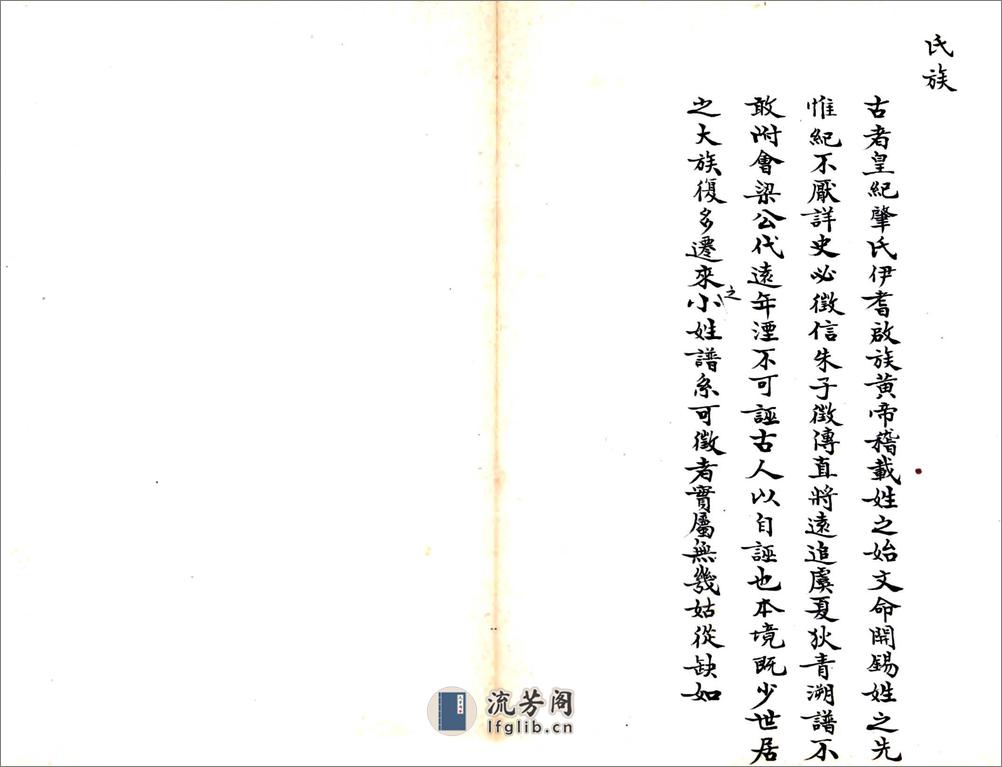 氏族
古者皇紀肇氏伊耆啟族黄帝稽載姓之始文命開錫姓之先
惟紀不厭詳史必徵信朱子徵傳直將遠追虞夏狄青溯譜不
敢附會梁公代遠年湮不可誣古人以自誣也本境既少世居
之大族復多遷來之小姓譜系可徵者實屬無幾姑從缺如
流芳阁
lfglib.cn